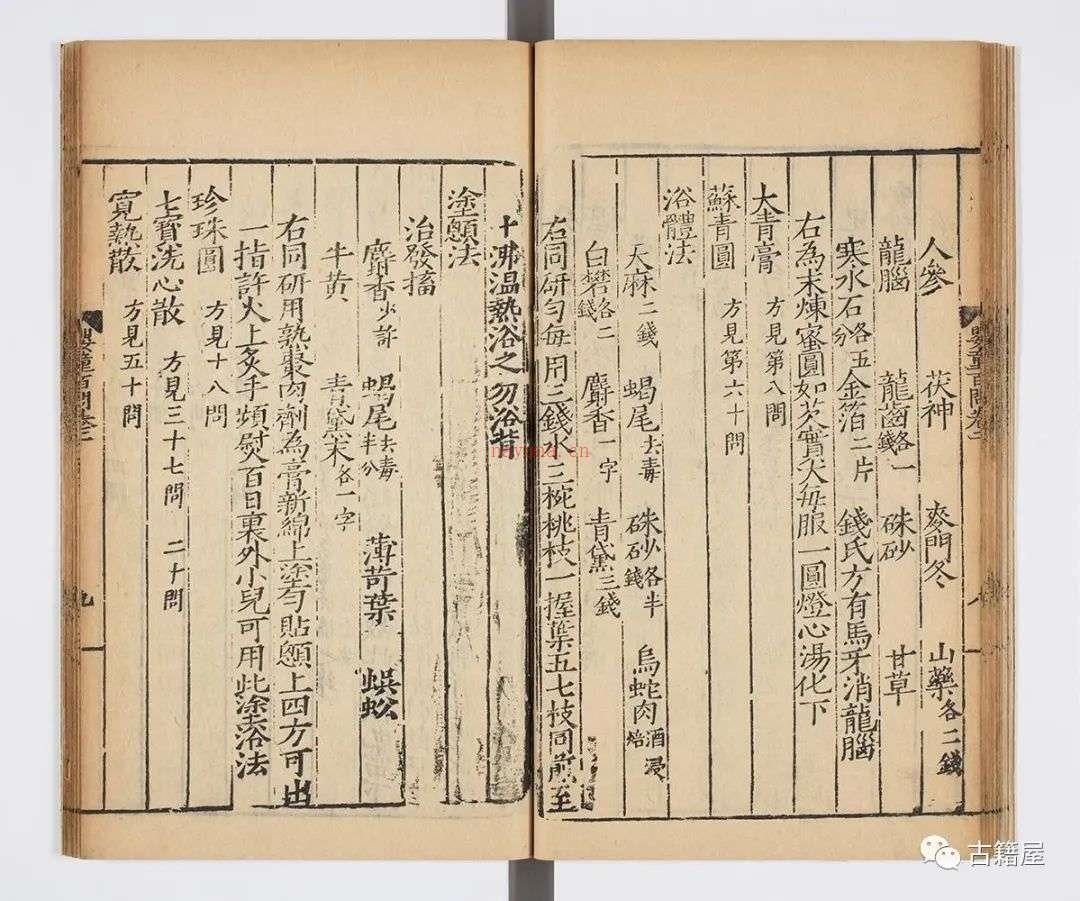 人參　茯神　麥門冬　山藥各二錢
龍腦　龍齒各一錢　硃砂　甘草
寒水石各五分　金箔二片　錢氏方有馬牙消龍腦
右為末煉蜜圓如芡實大每服一圓燈心湯化下
大青膏　方見第八問
蘇青圓　方見第六十問
浴體法
天麻二錢　蝎尾去毒　硃砂各半錢　烏蛇肉酒浸焙
白礬各二錢　麝香一字　青黛三錢
右同研勻每用三錢水三椀桃枝一握葉五七枝同煎至
十沸温熱浴之勿浴背
塗顖法
治發搐
麝香少許　蝎尾去毒半分　薄苛葉　蜈蚣
牛黄　青黛末各一字
右同研用熟棗肉劑為膏新綿上塗勻貼顖上四方可出
一指許火上炙手頻熨百日裏外小兒可用此塗浴法
珍珠圓　方見十八問
七寳洗心散　方見三十七問　二十問
寛熱散　方見五十問
嬰童百問卷二
八
九
nayona.cn
古籍屋